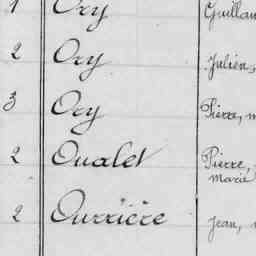 1 Ory Guillau
2 Ory Julien,
3 Ory Pierre, m
2 Oualet Pierre,
marié
2 Ourrière Jean,